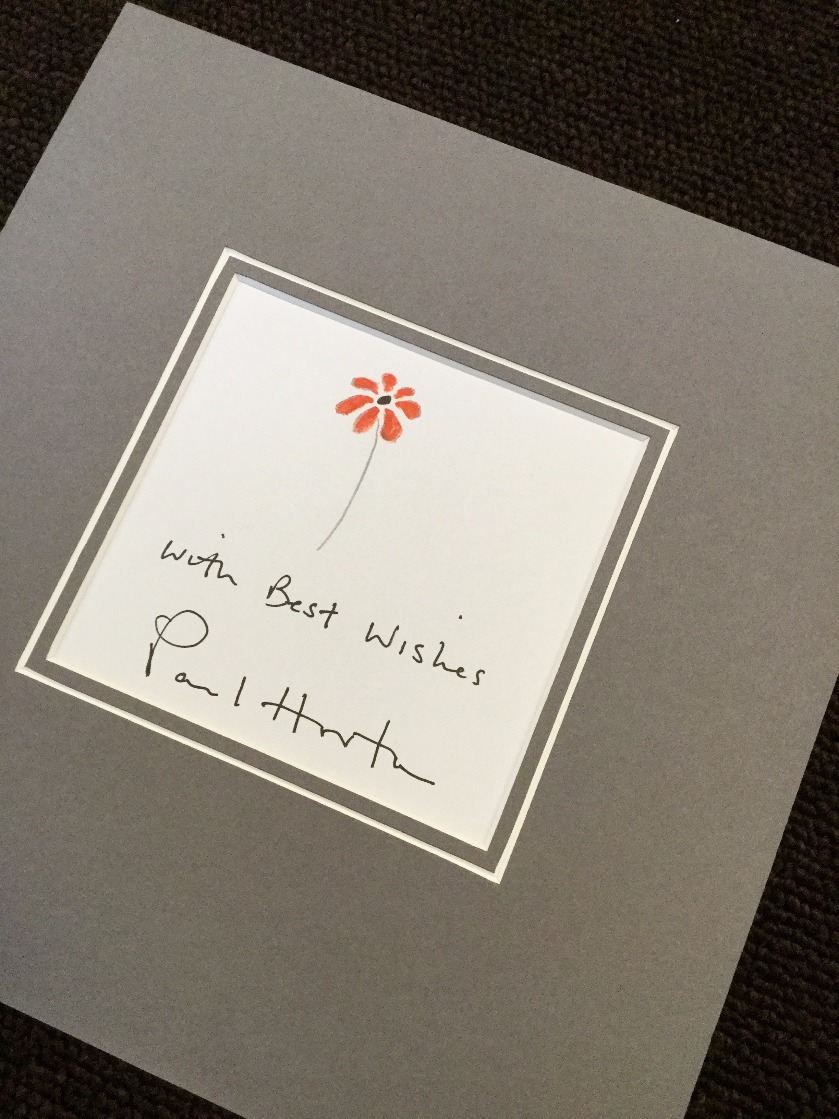 with Best Wishes
Paul Horton